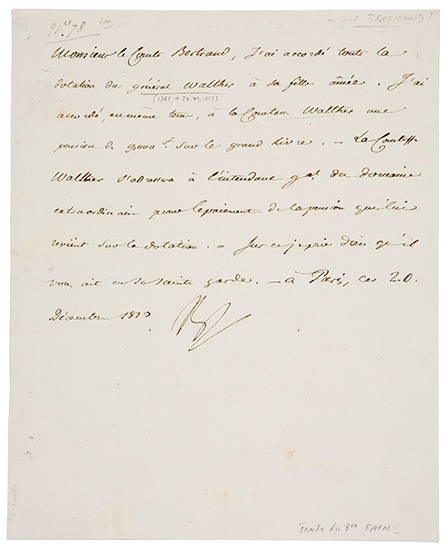 BERTRAND
Monsieur le Comte Bertrand, J'ai accordé toute la
dotation du général Walther à sa fille ainée. J'ai
(1761 + 24.XI.1813)
accordé, en même tems, à la Comtesse Walther une
pension de sur le grand livre. — La Comtesse
Walther s'adressera à l'intendant gal du domaine
extraordinaire pour le paiement de la pension qui lui
revient sur la dotation. — Sur ce je prie dieu qu'il
vous ait en sa sainte garde. — à Paris, ce 20.
Décembre 1813
Texte du Bon FAIN